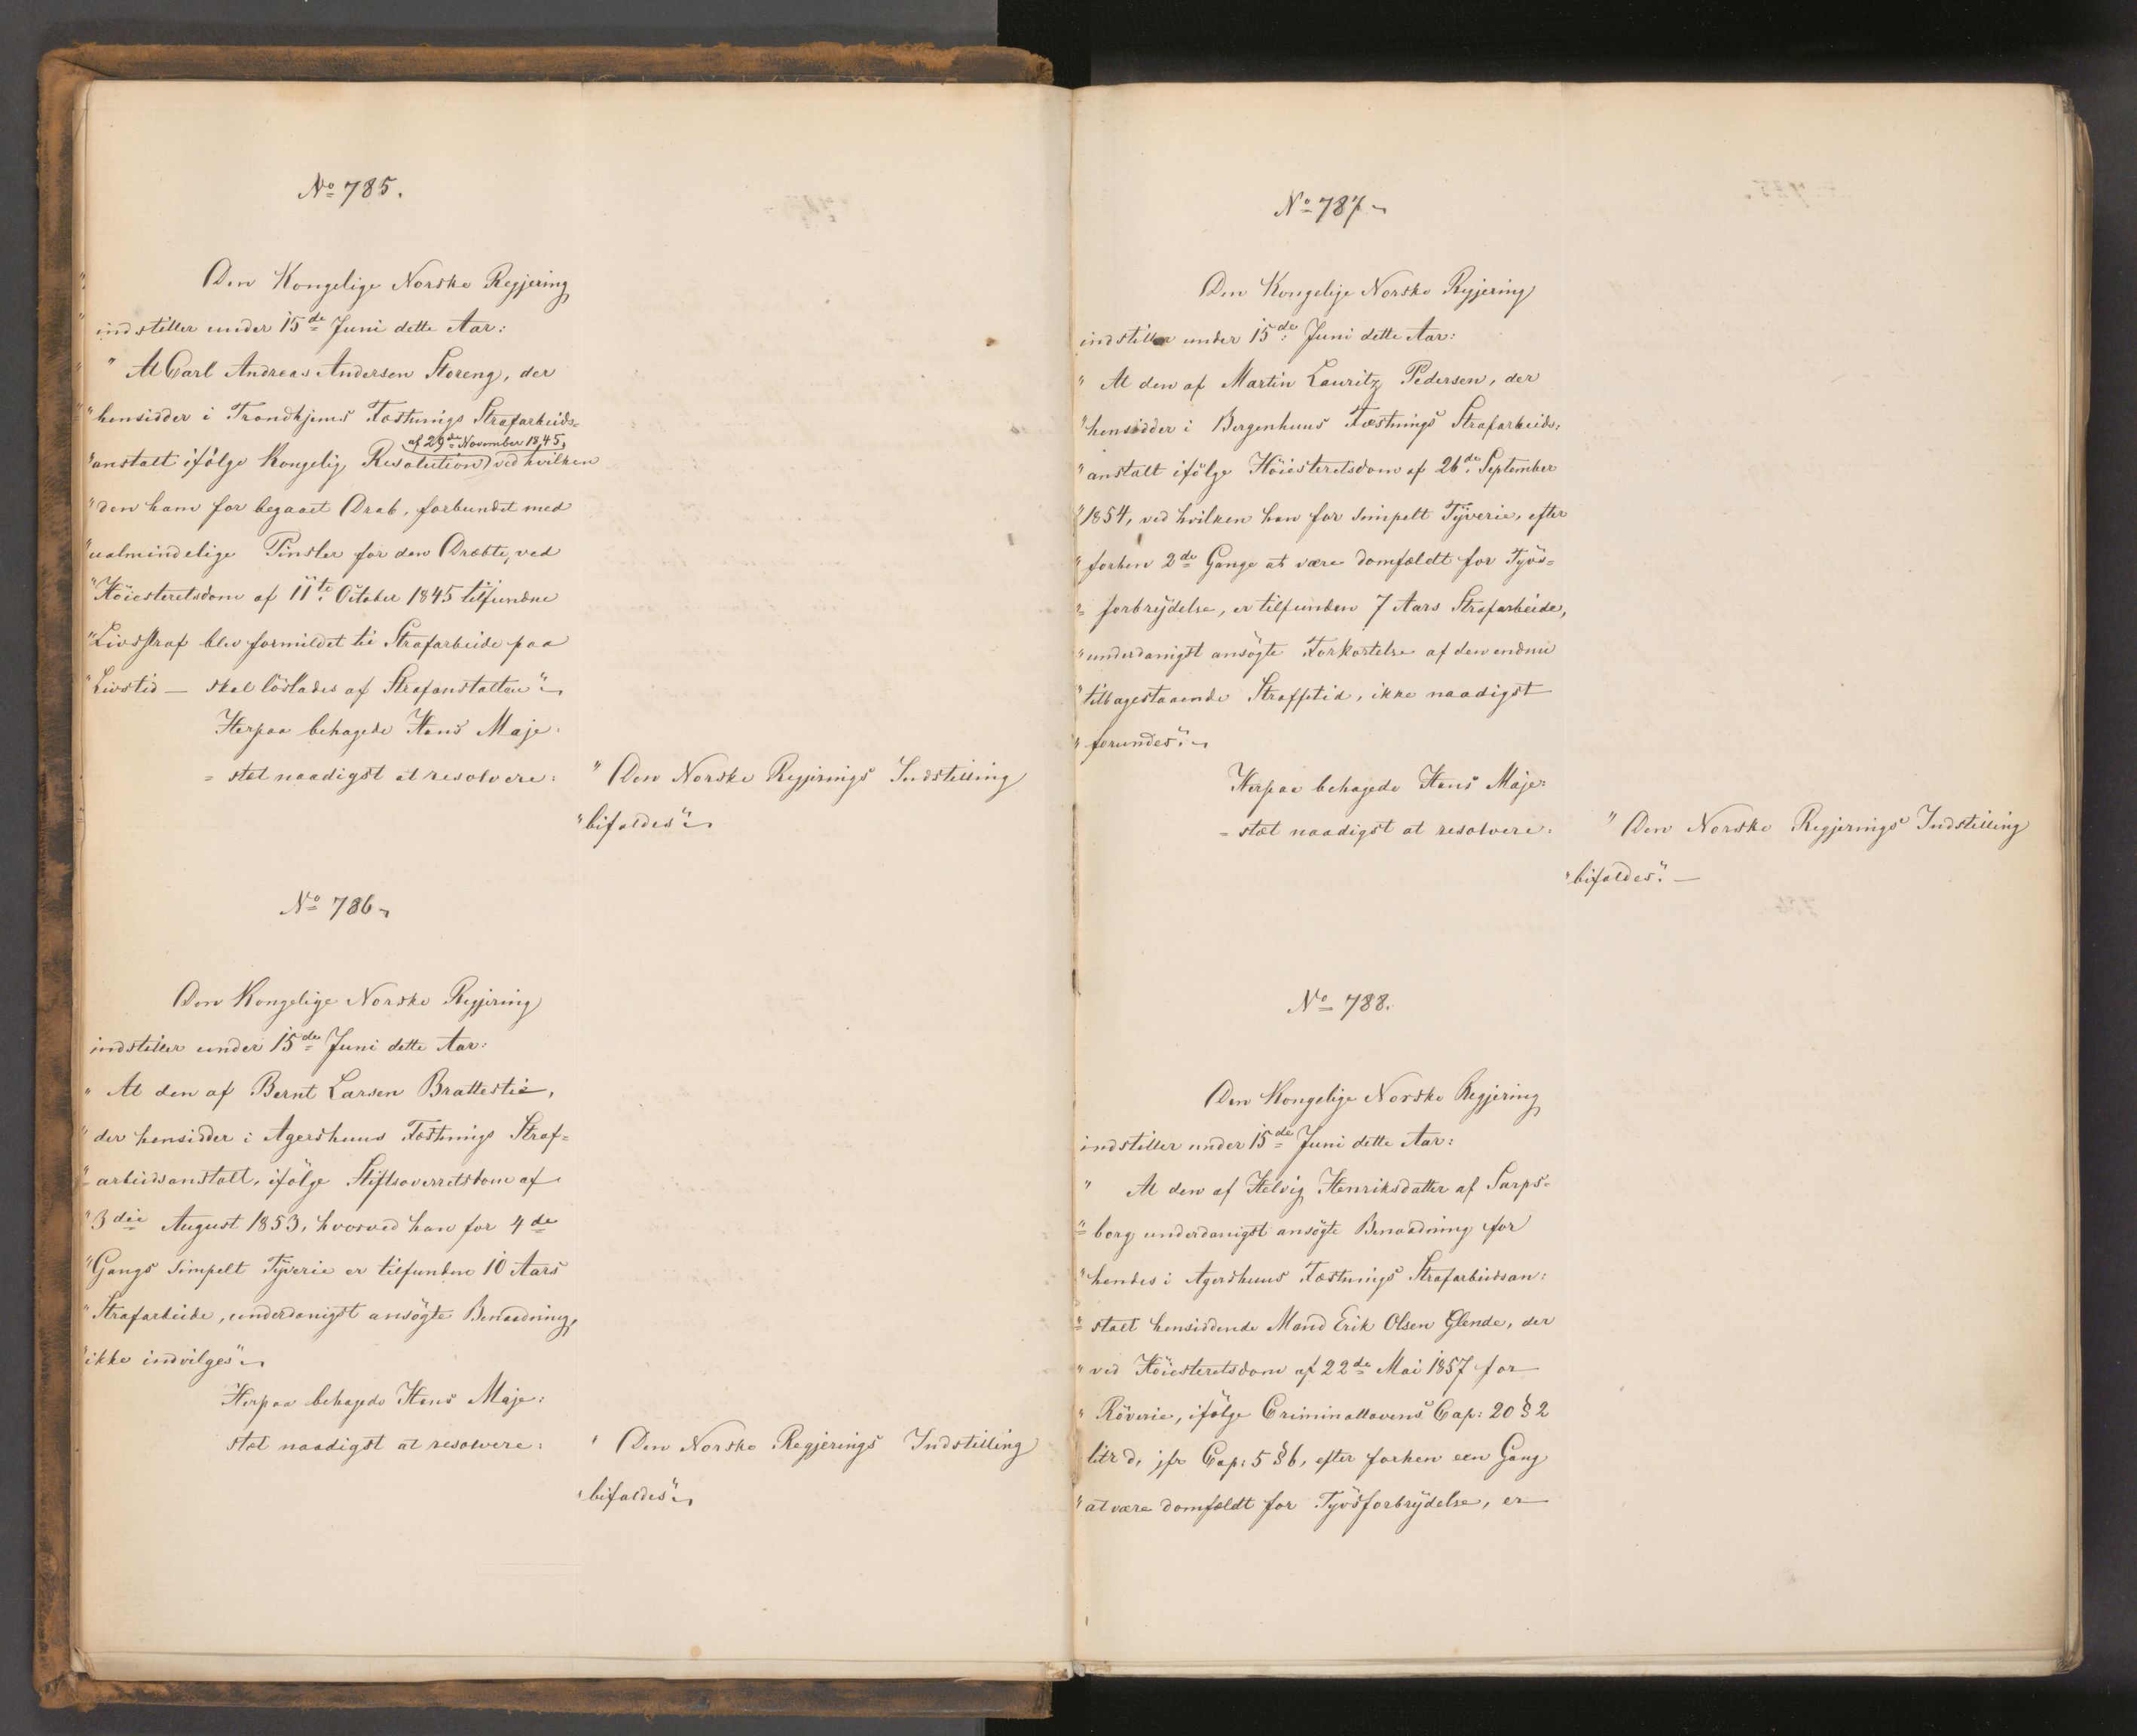 No 785.
Den Kongelige Norske Regjering
indstiller under 15de Juni dette Aar:
" At Carl Andreas Andersen Storeng, der
" hensidder i Trondhjems Fæstnings Strafarbeids-
af 29de November 1845,
" anstalt ifölge Kongelig Resolution ved hvilken
" den ham for begaaet Drab, forbundet med
" ualmindelige Pinsler for den Dræbte, ved
" Höiesteretsdom af 11te October 1845 tilfundne
" Livsstraf blev formildet til Strafarbeide paa
" Livstid — skal löslades af Strafanstalten"
Herpaa behagede Hans Maje-
= stæt naadigst at resolvere:
" Den Norske Regjerings Indstilling
" bifaldes"
No 786
Den Kongelige Norske Regjering
indstiller under 15de Juni dette Aar:
" At den af Bernt Larsen Brattestie,
" der hensidder i Agershuus Fæstnings Straf=
" arbeidsanstalt, ifölge Stiftsoverretsdom af
" 3die August 1853, hvorved han for 4de
" Gangs simpelt Tyverie er tilfunden 10 Aars
" Strafarbeide, underdanigst ansögte Benaadning,
" ikke indvilges"
Herpaa behagede Hans Maje:
stæt naadigst at resolvere:
" Den Norske Regjerings Indstilling
" bifaldes"
No 787
Den Kongelige Norske Regjering
indstiller under 15de Juni dette Aar:
" At den af Martin Lauritz Pedersen, der
" hensidder i Bergenhuus Fæstnings Strafarbeids-
" anstalt ifölge Höiesteretsdom af 26de September
" 1854, ved hvilken han for simpelt Tyverie, efter
" forhen 2de Gange at være domfældt for Tyvs=
= forbrydelse, er tilfunden 7 Aars Strafarbeide,
" underdanigst ansögte Forkortelse af den endnu
" tilbagestaaende Straffetid, ikke naadigst
" forundes."
Herpaa behagede Hans Maje-
= stæt naadigst at resolvere:
" Den Norske Regjerings Indstilling
" bifaldes." —
No 788.
Den Kongelige Norske Regjering
indstiller under 15de Juni dette Aar:
" At den af Helvig Henriksdatter af Sarps-
= borg underdanigst ansögte Benaadning for
" hendes i Agershuus Fæstnings Strafarbeidsan:
= stalt hensiddende Mand Erik Olsen Glende, der
" ved Höiesteretsdom af 22de Mai 1857 for
" Röverie, ifölge Criminallovens Cap: 20 § 2
litr d, jfr Cap: 5 § 6, efter forhen een Gang
" at være domfældt for Tyvsforbrydelse, er